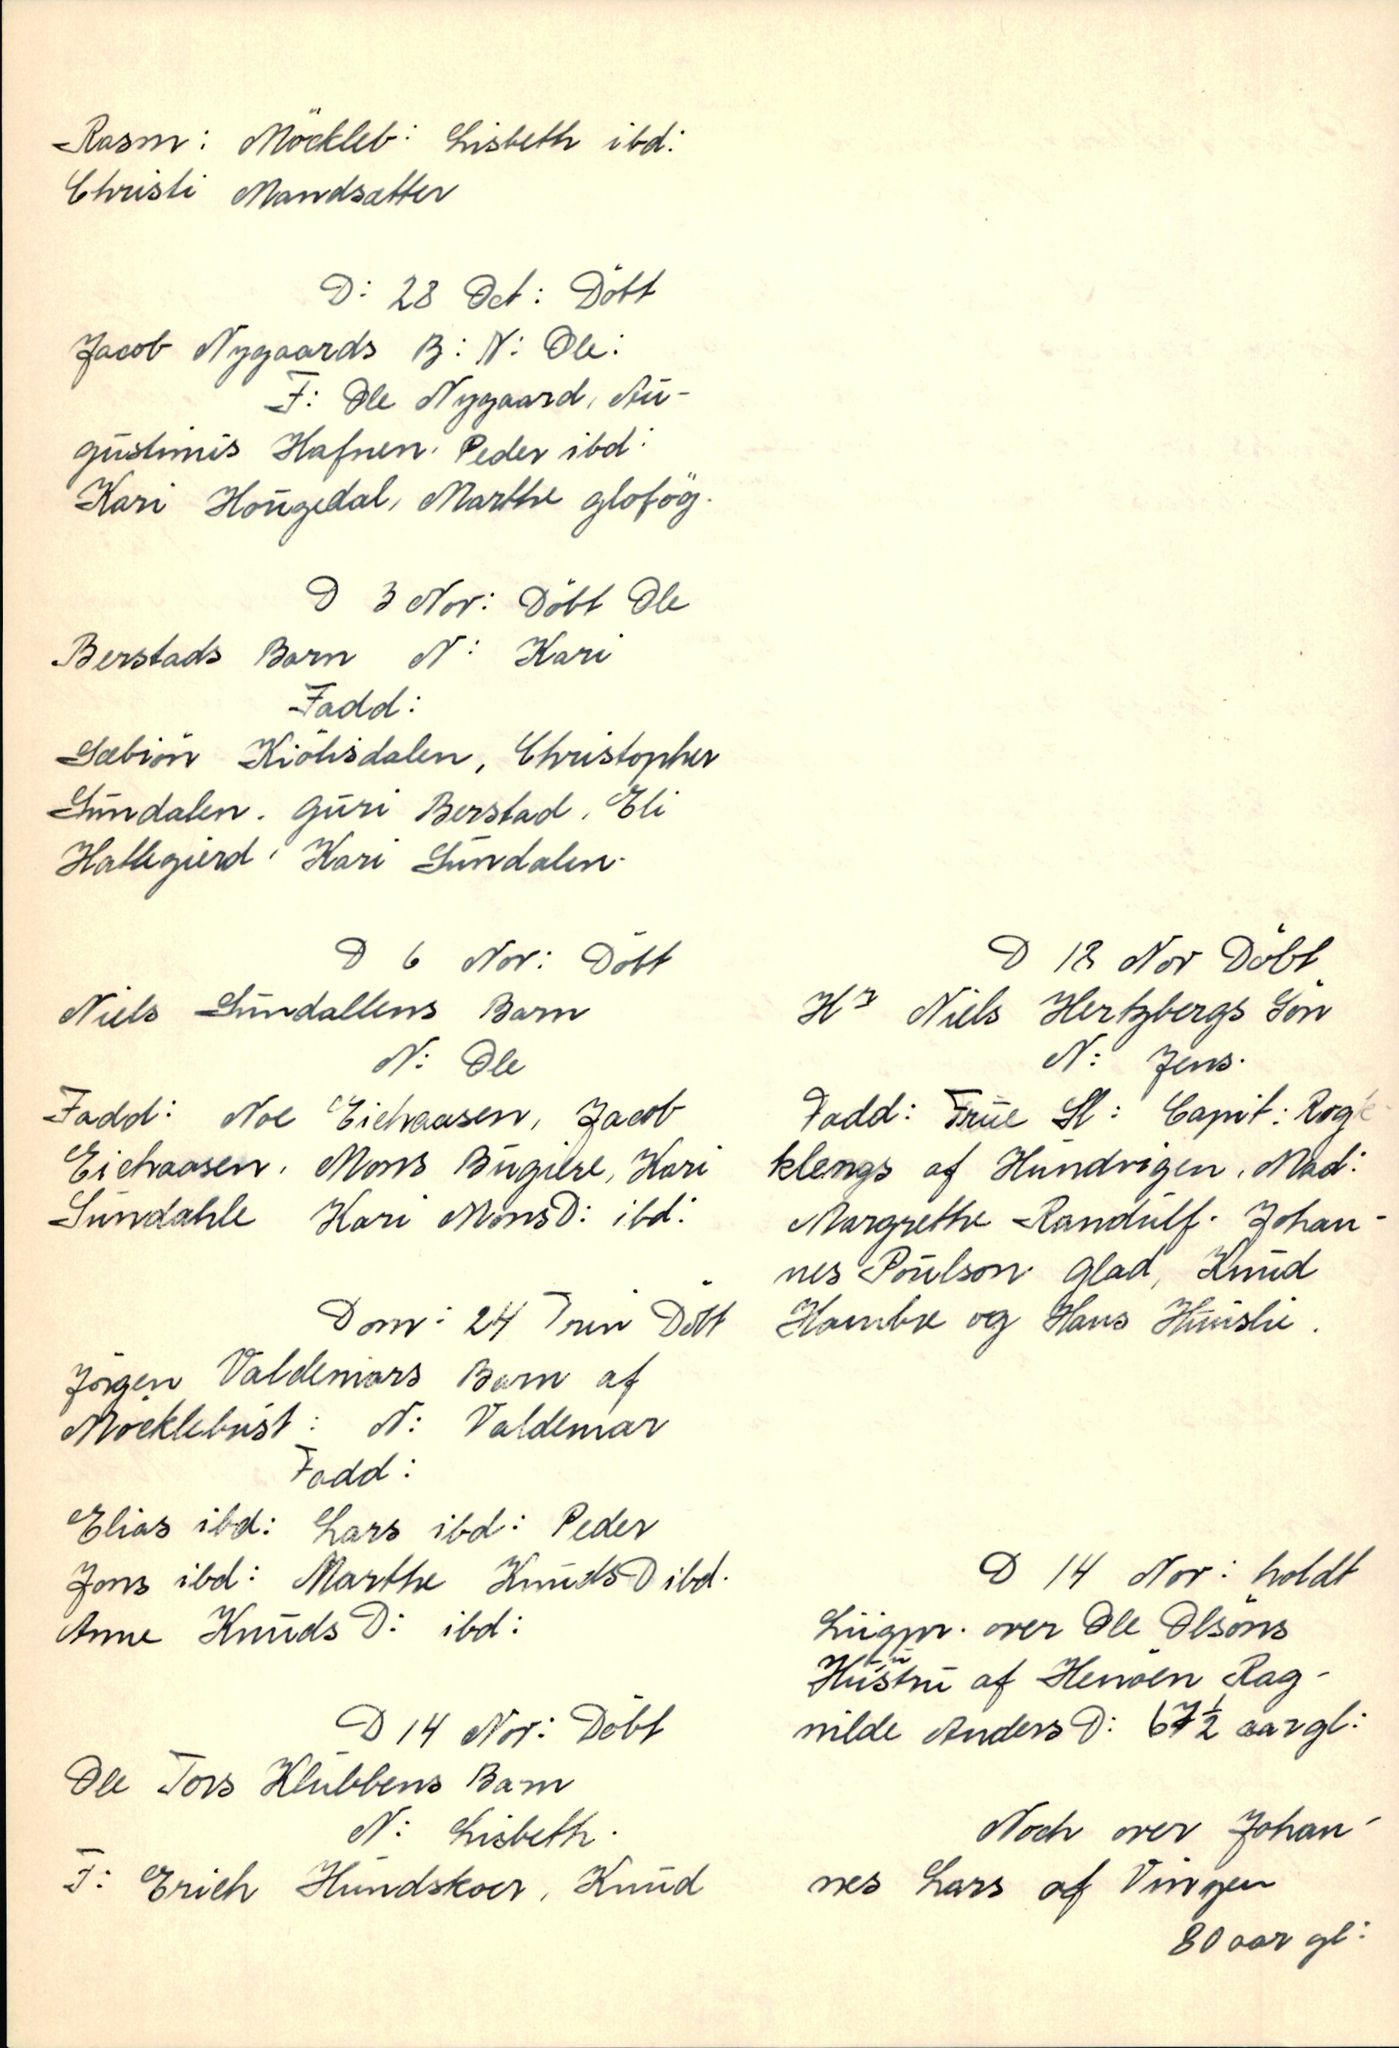 Rasm: Möckleb: Lisbeth ibd:
Christi Mandsætter
D: 28 Oct: Döbt
Jacob Nygaards B: N: Ole:
F: Ole Nygaard, Au-
gustinus Hafnen. Peder ibd:
Kari Hougedal, Marthe glofög.
D 3 Nov: Döbt Ole
Berstads Barn N: Kari
Fadd:
Sæbiön Kiölisdalen, Christopher
Sundalen. Guri Berstad, Eli
Hattegierd, Kari Sundalen.
D 6 Nov: Döbt
Niels Sundallens Barn
N: Ole
Fadd: Noe Eichaasen, Jacob
Eichaasen. Mons Bugiere, Kari
Sundahle Kari MonsD: ibd:
Dom: 24 Trin Döbt
Jörgen Valdemars Barn af
Möcklebust: N: Valdemar
Fadd:
Elias ibd: Lars ibd: Peder
Jons ibd: Marthe KnudsD ibd.
Anne Knuds D: ibd:
D 14 Nov: Döbt
Ole Tors Klubbens Barn
N: Lisbeth.
F: Erich Hundskoer, Knud
D 13 Nov Döbt
Hr Niels Hertzbergs Sön
N: Jens.
Fadd: Frue Sl: Capit: Rog-
klengs af Hundvigen. Mad:
Margrethe Randulf. Johan-
nes Poulson Glad, Knud
Hambre og Hans Huuslie.
D 14 Nov: holdt
Liigpr. over Ole Olsöns
Hustru af Henöen Rag-
nilde Anders D: 67½ aar gl:
Noch over Johan-
nes Lars af Vingen
80 aar gl: